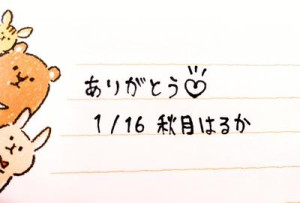 ありがとう♡
1/16 秋月はるか